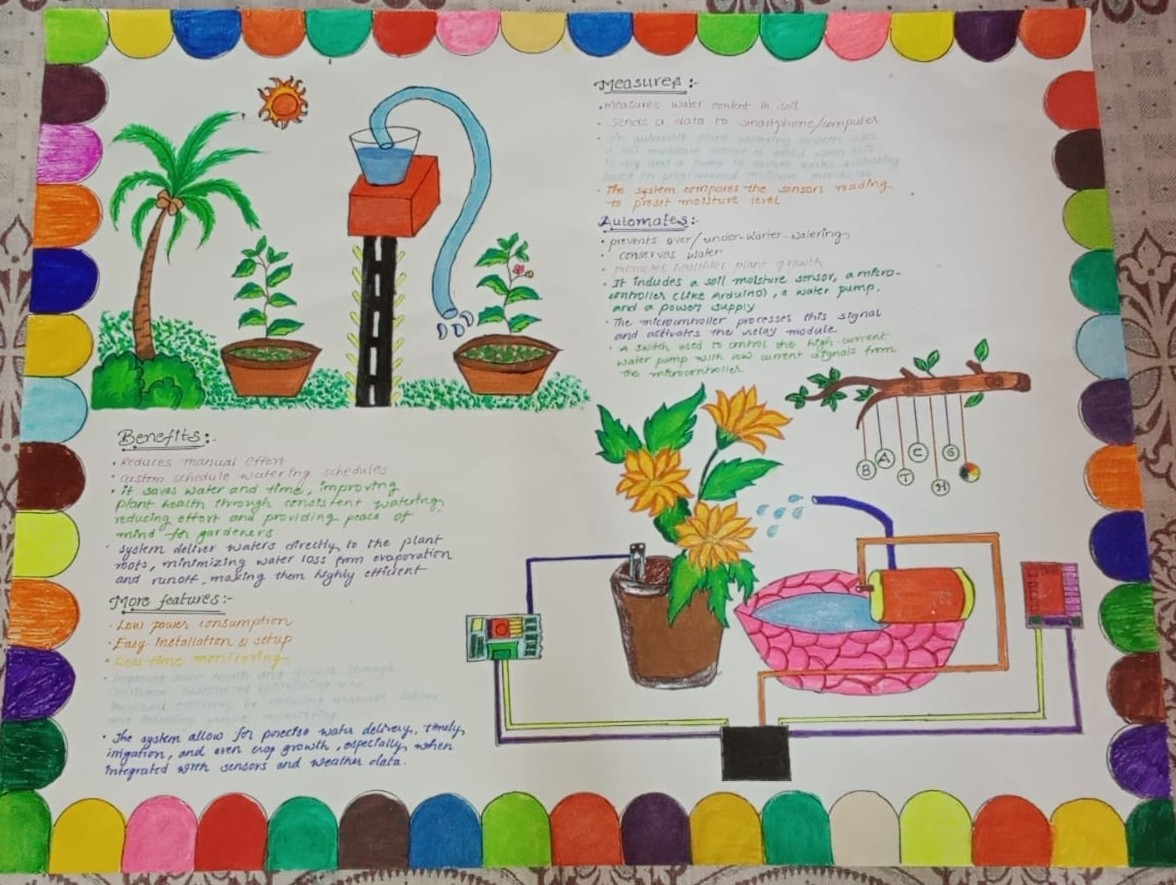 Measures:-
• Measures water content in soil
• Sends a data to smartphone/computer
An automatic plant watering system uses
a soil moisture sensor to detect when soil
is dry and a pump to
based on
• The system compares the sensors reading
to preset moisture level
Automates:-
• prevents over/under-warter-watering
• conserves water
• promotes healthier plant growth
• It includes a soil moisture sensor, a micro-
controller (like Arduino), a water pump,
and a power supply
• The microcontroller processes this signal
and activates the relay module
• A switch used to control the high-current
water pump with low current signals from
the microcontroller
B A T C H G
Benefits:-
• Reduces manual effort
• custom schedule watering schedules
• it saves water and time, improving
plant health through consistent watering,
reducing effort and providing peace of
mind for gardeners
• system deliver waters directly to the plant
roots, minimizing water loss from evaporation
and runoff, making them highly efficient
More features:-
• Low power consumption
• Easy installation & setup
• Real time monitoring
• Improved plant health and growth through
• The system allow for precise water delivery, timely
irrigation, and even crop growth, especially, when
integrated with sensors and weather data.